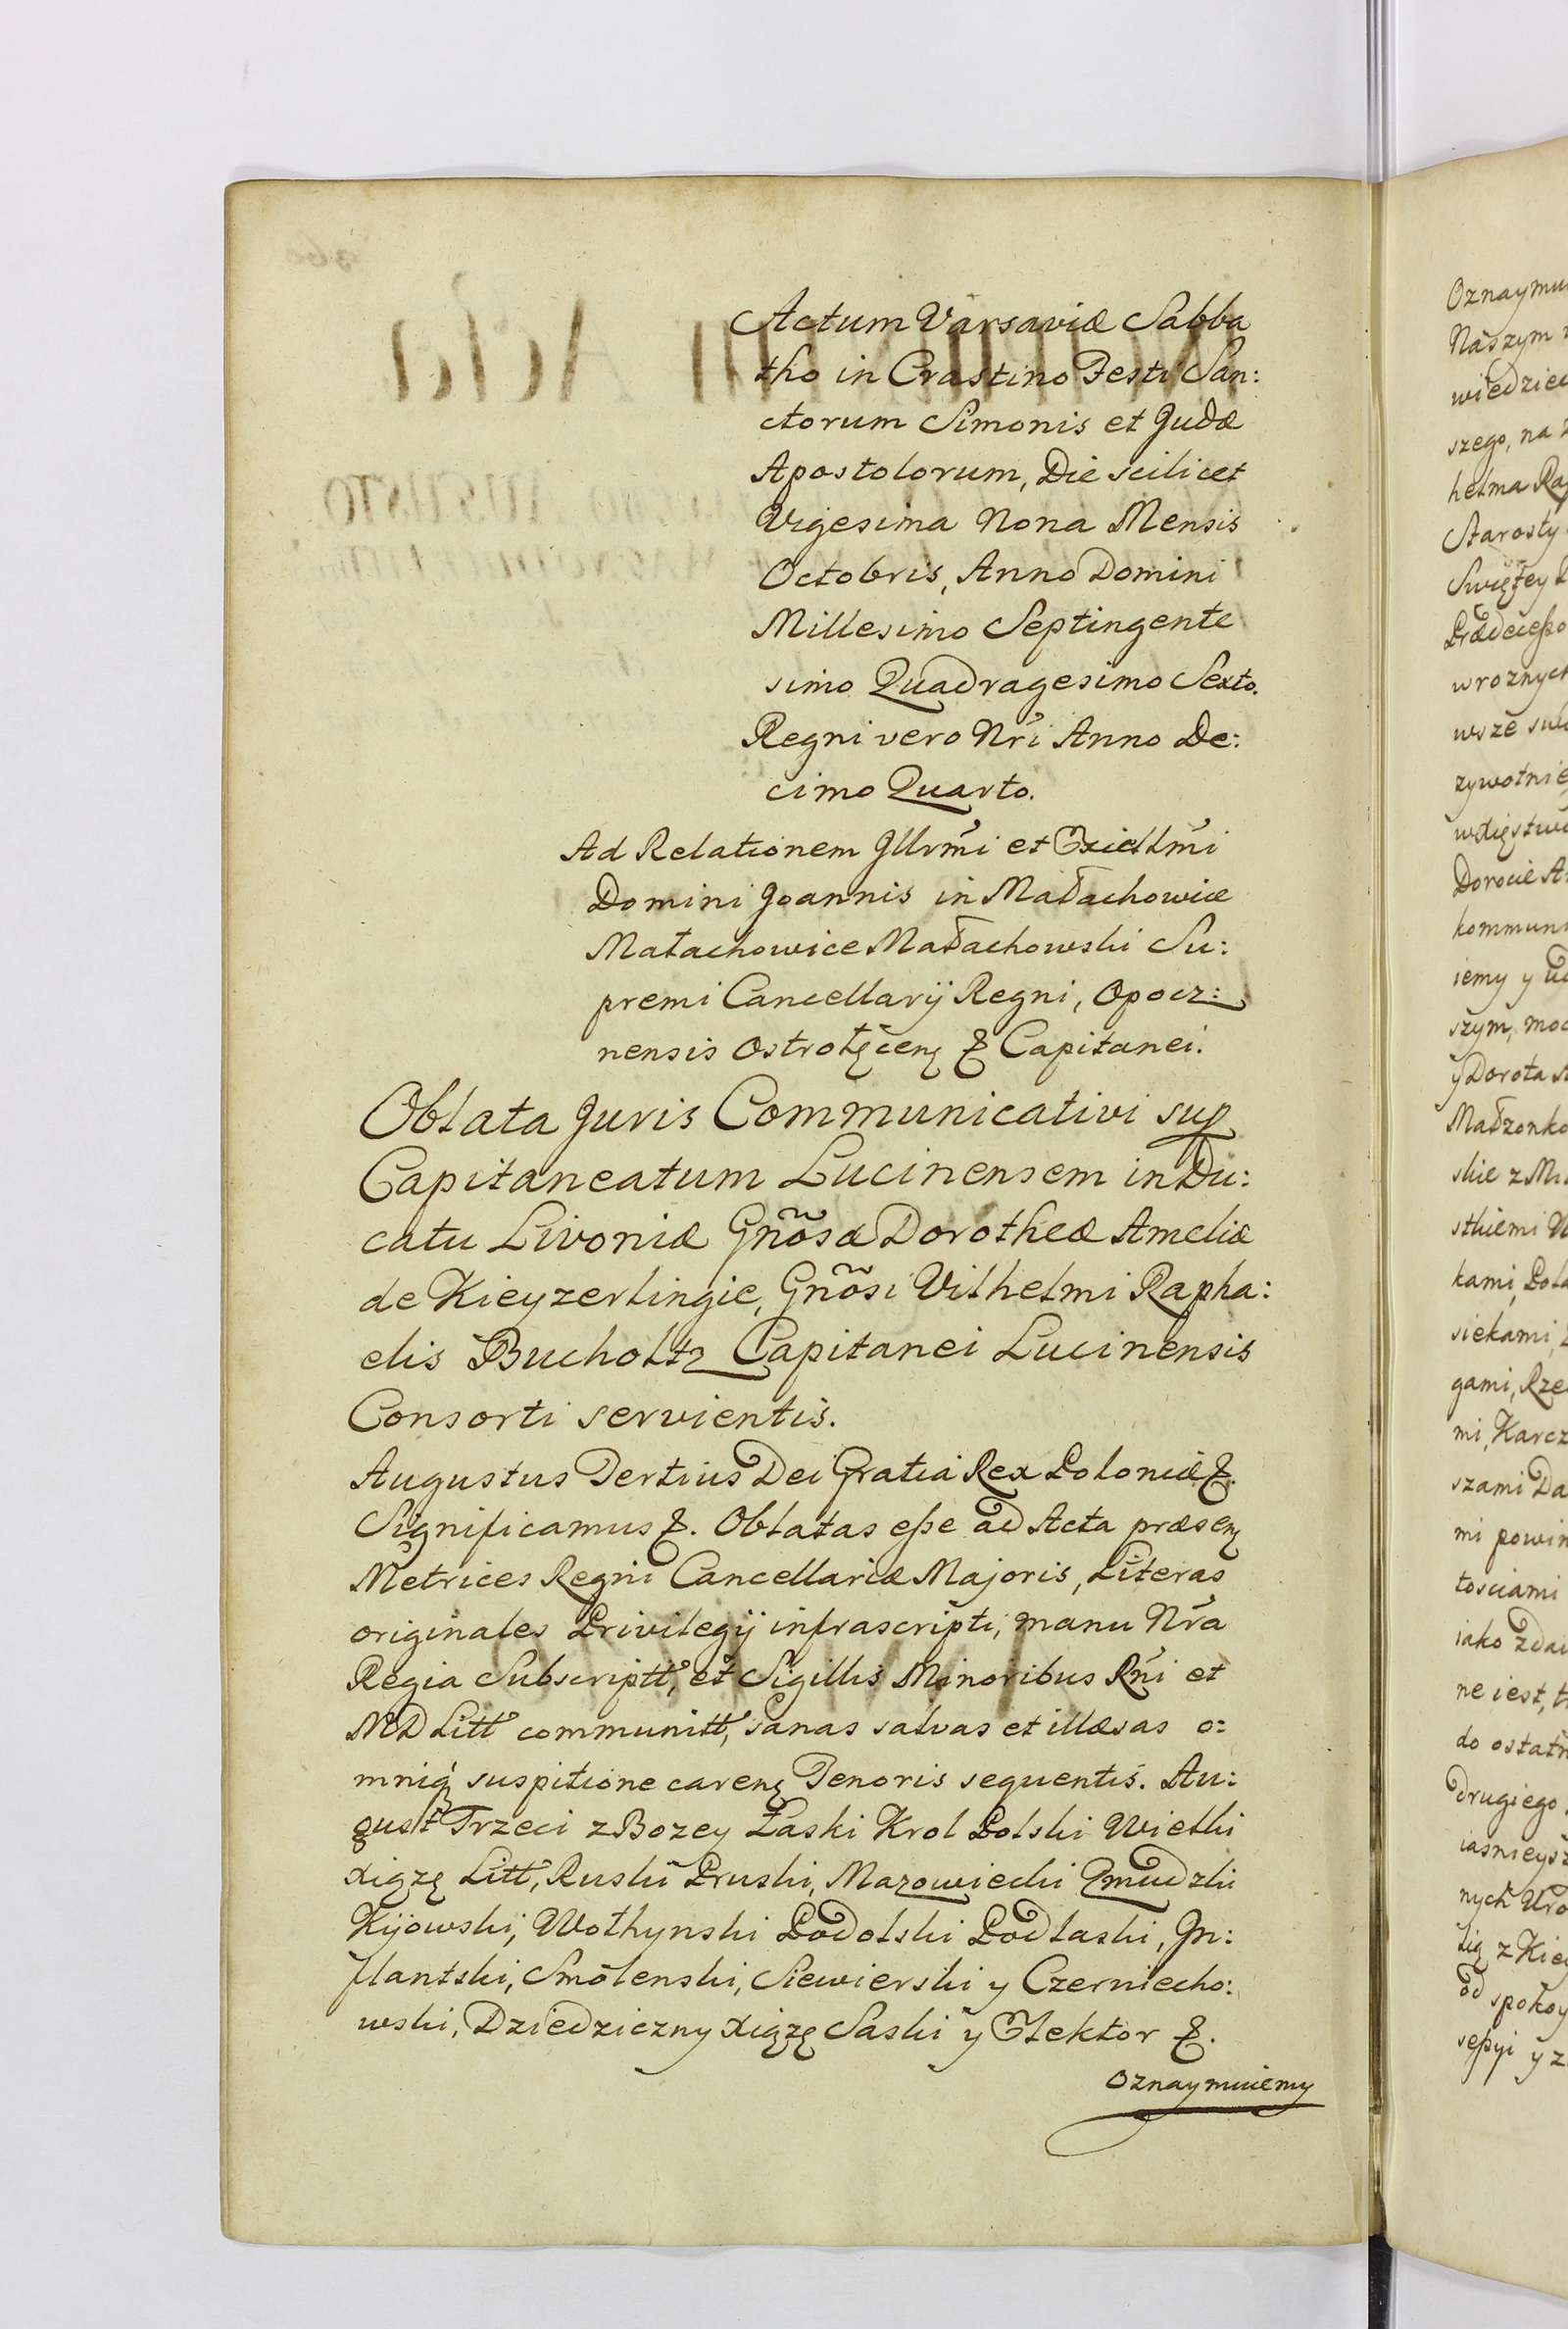 Actum Varsaviæ Sabba
tho in Crastino Festi San:
ctorum Simonis et Judæ
Apostolorum, Die scilicet
Vigesima Nona Mensis
Octobris, Anno Domini
Millesimo Septingente
simo Quadragesimo Sexto.
Regni vero Nri Anno De:
cimo Quarto.
Ad Relationem Jllrmi et Excellmi
Domini Joannis in Małachowice
Małachowice Małachowski Su:
premi Cancellarij Regni, Opocz:
nensis Ostrołęcenꝫ & Capitanei.
Oblata Juris Communicativi sup
Capitaneatum Lucinensem in Du:
catu Livoniæ Gnõsæ Dorotheæ Ameliæ
de Kieyzerlingie, Gnõsi Vilhelmi Rapha:
elis Bucholtz Capitanei Lucinensis
Consorti servientis.
Augustus Tertius Dei Gratia Rex Poloniæ &.
Significamus &. Oblatas eſse ad Acta præsenꝫ
Metrices Regni Cancellariæ Majoris, Literas
originales Privilegij infrascripti, manu Nra
Regia Subscriptt, et Sigillis Minoribus Rni et
MD Litt communitt, sanas salvas et illæsas o:
mniq suspitione carenꝫ Tenoris sequentis. Au:
gust Trzeci z Bozey Łaski Krol Polski Wielki
Xiąze Litt, Ruski Pruski, Mazowiecki Zmudzki
Kijowski, Wołhynski Podolski Podlaski, Jn:
flantski, Smolenski, Siewierski y Czerniecho:
wski, Dziedziczny Xiąze Saski y Elektor &.
Oznaymuiemy
Oznaymu
Naszym
wiedziec
szego, na
helma Ra
Starosty
Swiętey
wroznych
wsze
zywotnie
Dorocie A
kommuni
iemy y
szym, moc
y Dorota
Małzonko
skie z
stkiemi
kami, Pola
siekami,
gami, Rze
mi, Karcz
szami Da
mi powin
tosciami
iako zda
ne iest, t
do ostatn
drugiego
iasnieysz
nych Uro
lią z Kie
od spokoy
seſsyi y z